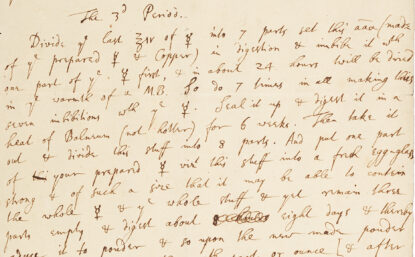 The 3d Period.
Divide ye last ʒiv of ☿ into 7 parts set this āāā (made
of ye prepared ☿ & Copper) in digestion & imbibe it wth
one part of ye ☿ first, & in about 24 hours will be dried
in ye warmth of a MB. So do 7 times in all making thus
seven inibitions wth ye ☿. Seal it up & digest it in a
heat of Balneum (not hotter) for 6 weeks. Then take it
out & divide this stuff into 8 parts. And put one part
of your prepared ☿ viz this stuff into a fresh Egg-glass
strong & of such a size that it may be able to contein
the whole ☿ & ye whole stuff & yet remain three
parts empty & digest about eight days & thereby
it to pouder & so upon the new made pouder
the part or ounce [& after